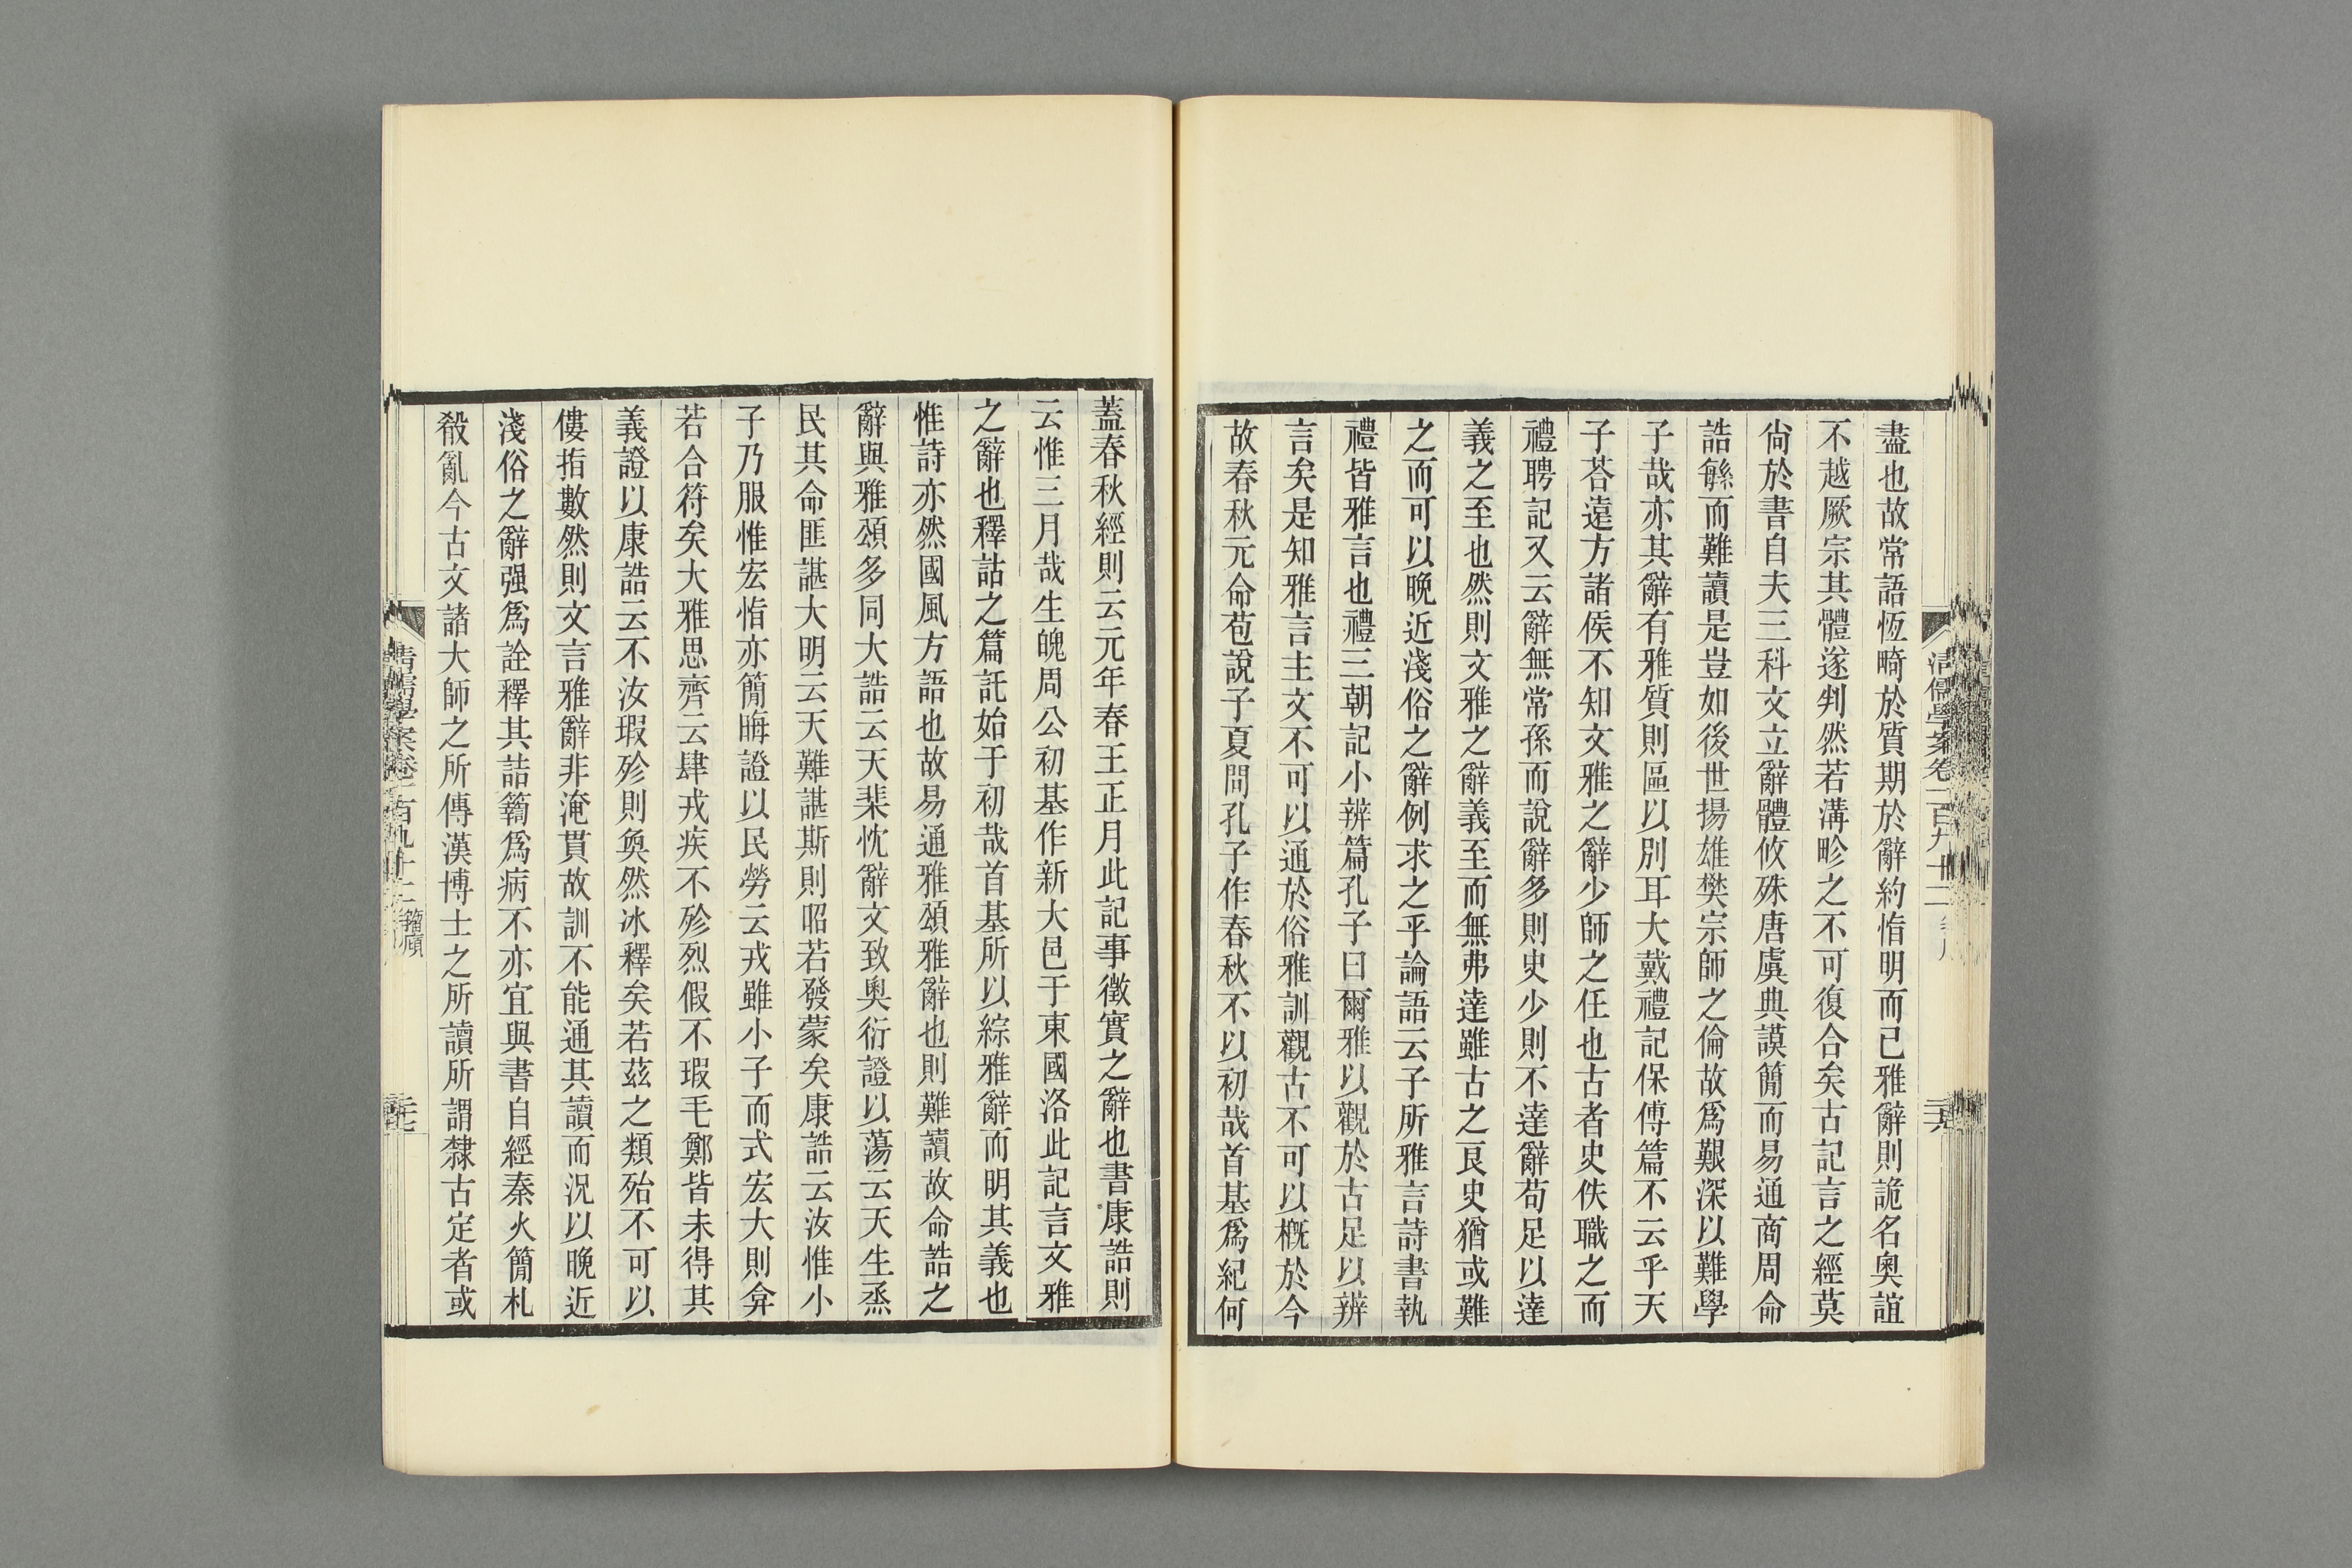 盡也故常語恆畸於質期於辭約恉明而已雅辭則詭名奧誼
不越厥宗其體遂判然若溝畛之不可復合矣古記言之經莫
尙於書自夫三科文立辭體攸殊唐虞典謨簡而易通商周命
誥緐而難讀是豈如後世揚雄樊宗師之倫故爲艱深以難學
子哉亦其辭有雅質則區以別耳大戴禮記保傅篇不云乎天
子荅遠方諸侯不知文雅之辭少師之任也古者史佚職之而
禮聘記又云辭無常孫而說辭多則史少則不達辭苟足以達
義之至也然則文雅之辭義至而無弗達雖古之良史猶或難
之而可以晚近淺俗之辭例求之乎論語云子所雅言詩書執
禮皆雅言也禮三朝記小辨篇孔子曰爾雅以觀於古足以辨
言矣是知雅言主文不可以通於俗雅訓觀古不可以概於今
故春秋元命苞說子夏問孔子作春秋不以初哉首基爲紀何
蓋春秋經則云元年春王正月此記事徵實之辭也書康誥則
云惟三月哉生魄周公初基作新大邑于東國洛此記言文雅
之辭也釋詁之篇託始于初哉首基所以綜雅辭而明其義也
惟詩亦然國風方語也故易通雅頌雅辭也則難讀故命誥之
辭與雅頌多同大誥云天棐忱辭文致奧衍證以蕩云天生烝
民其命匪諶大明云天難諶斯則昭若發蒙矣康誥云汝惟小
子乃服惟宏恉亦簡晦證以民勞云戎雖小子而式宏大則弇
若合符矣大雅思齊云肆戎疾不殄烈假不瑕毛鄭皆未得其
義證以康誥云不汝瑕殄則奐然冰釋矣若茲之類殆不可以
僂指數然則文言雅辭非淹貫故訓不能通其讀而況以晚近
淺俗之辭强爲詮釋其詰籀爲病不亦宜與書自經秦火簡札
殽亂今古文諸大師之所傳漢博士之所讀所謂隸古定者或